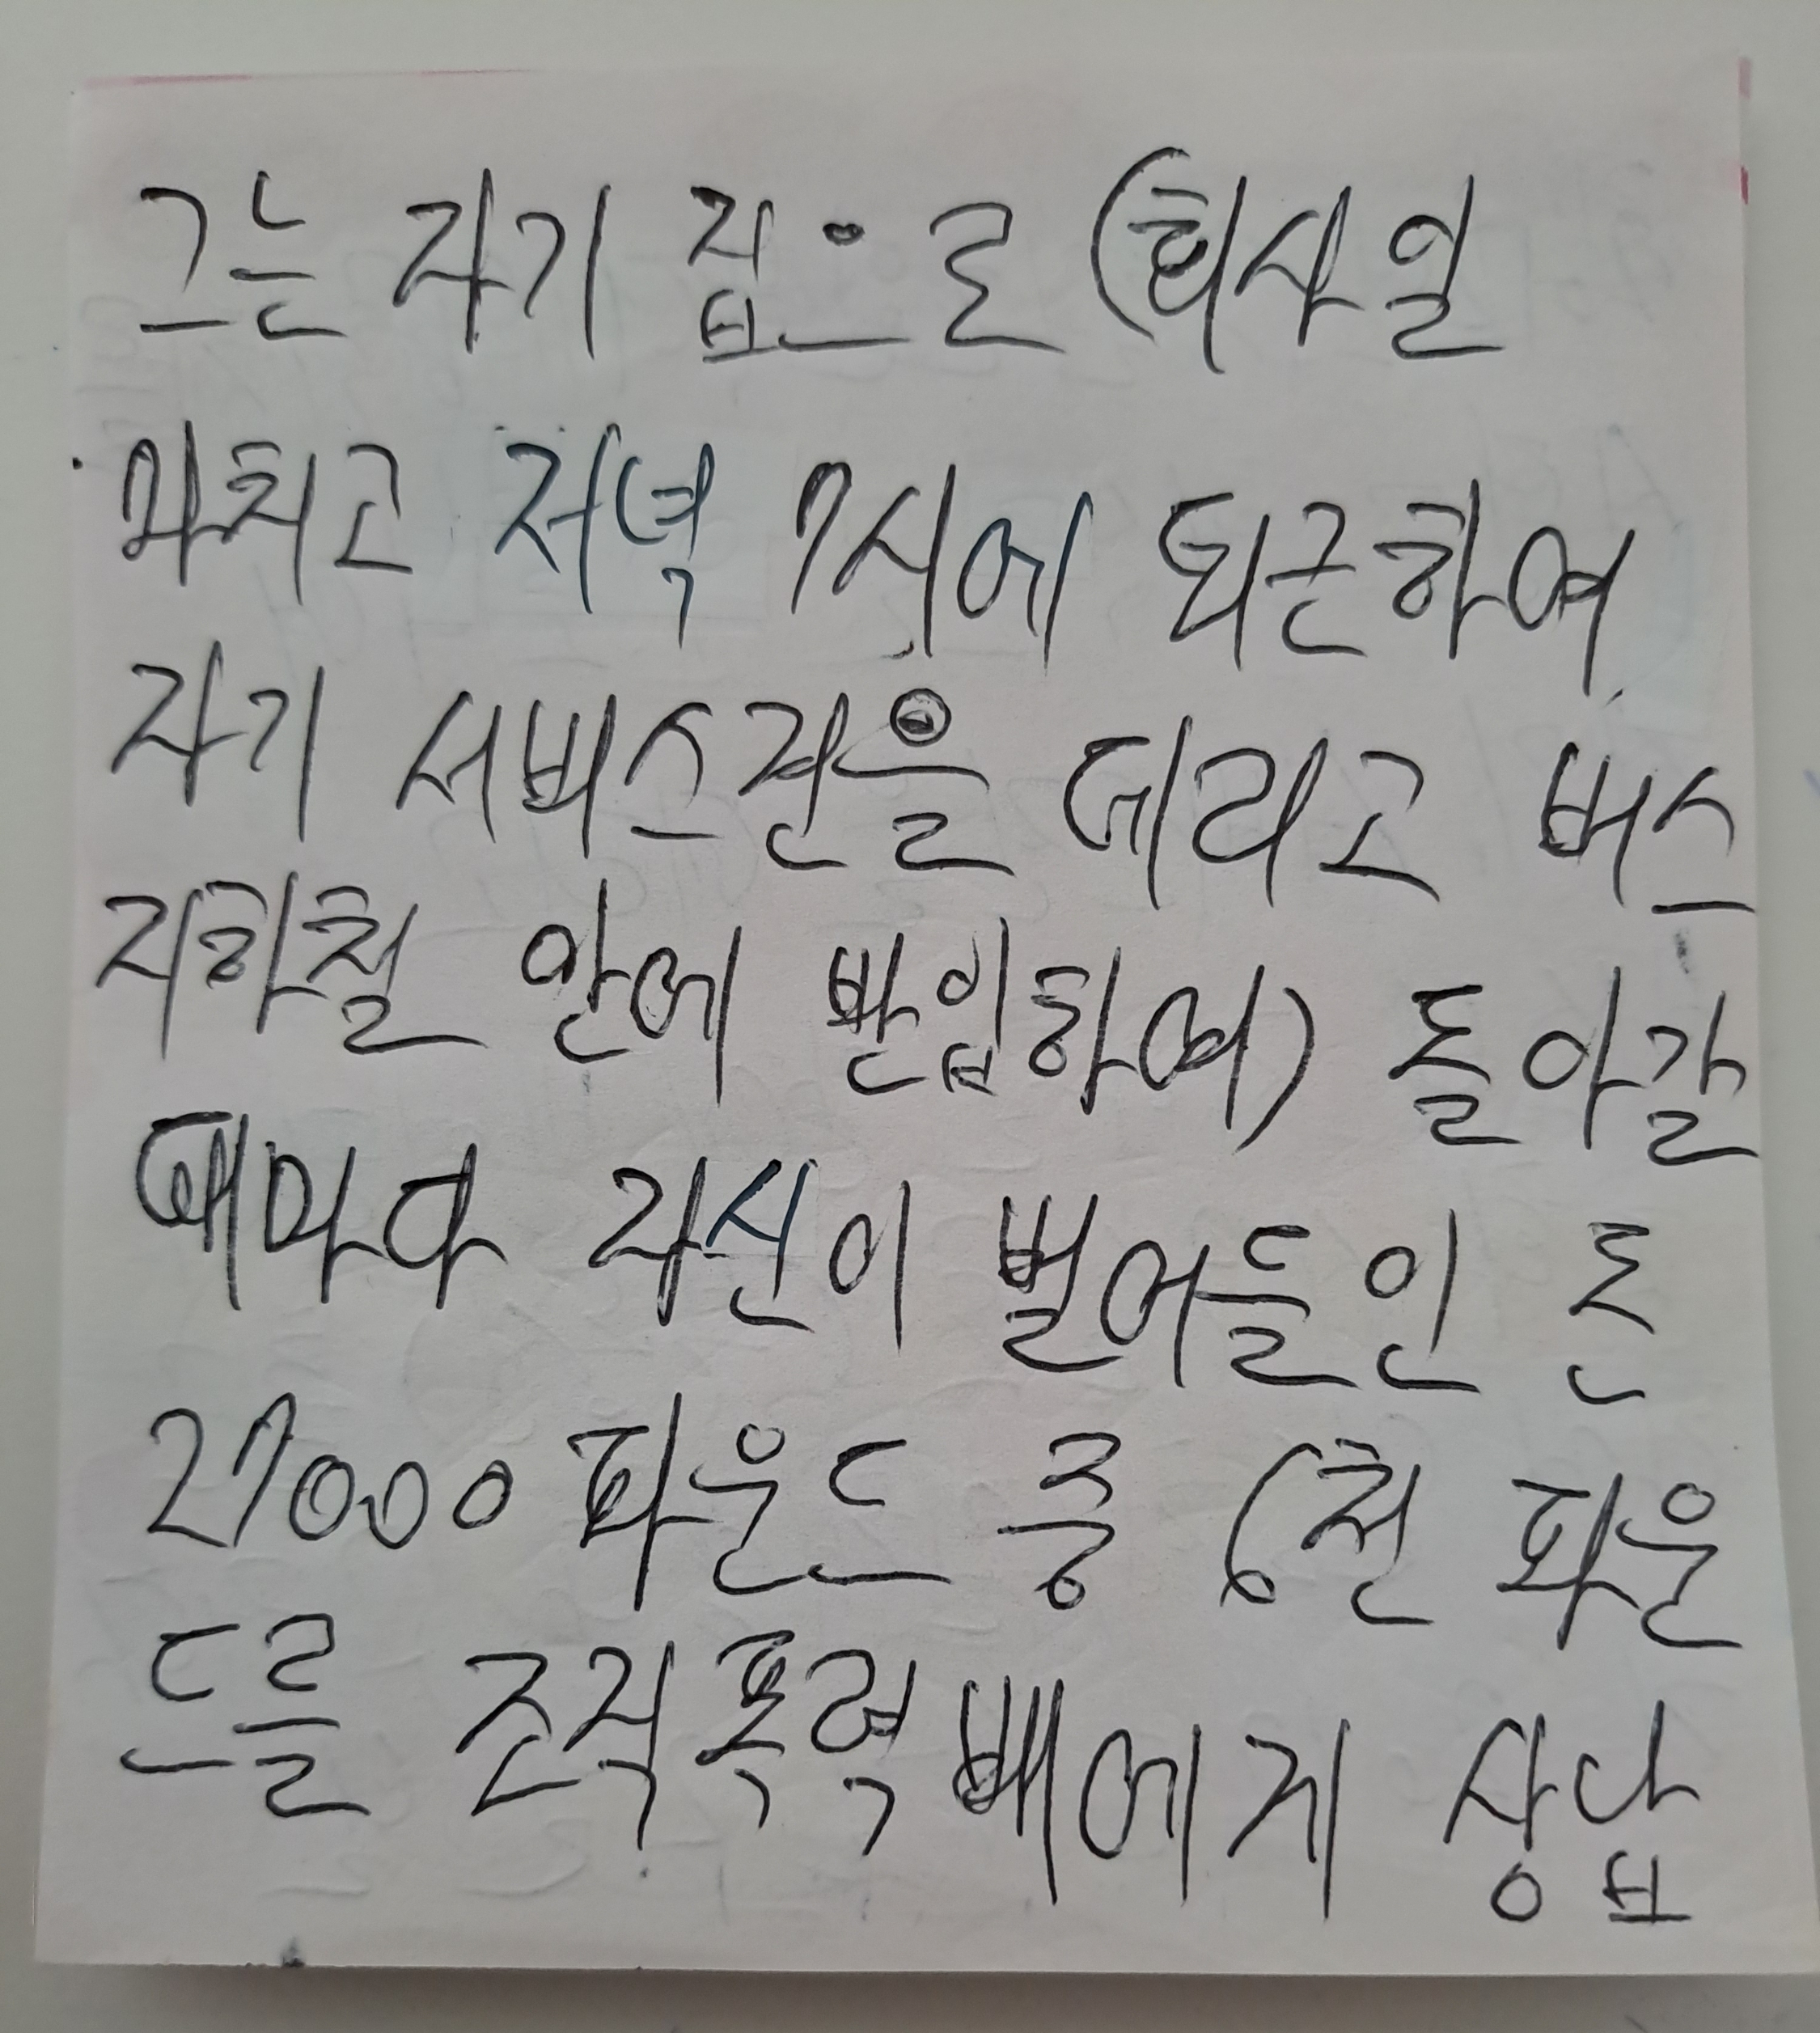 그는 자기 집으로 (회사일
마치고 저녁 7시에 퇴근하여
자기 서비스견을 데리고 버스
지하철 안에 반입하여) 돌아갈
때마다 자신이 벌어들인 돈
27000파운드 중 6천 파운
드를 조직폭력배에게 상납